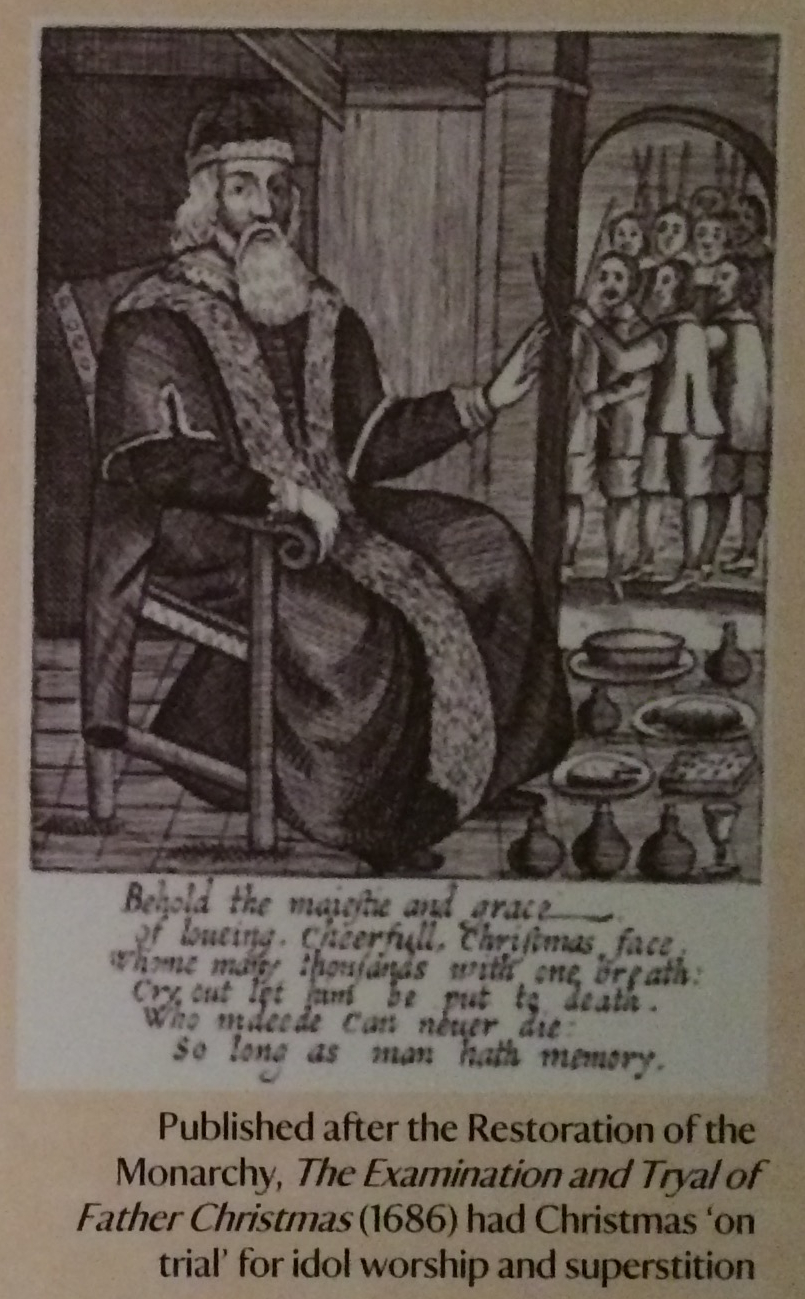 Behold the maiestie and grace
of loueing, Cheerfull, Christmas face,
Whome many thousands with one breath:
Cry out let him be put to death.
Who indeede Can neuer die:
So long as man hath memory.
Published after the Restoration of the
Monarchy, The Examination and Tryal of
Father Christmas (1686) had Christmas ‘on
trial’ for idol worship and superstition